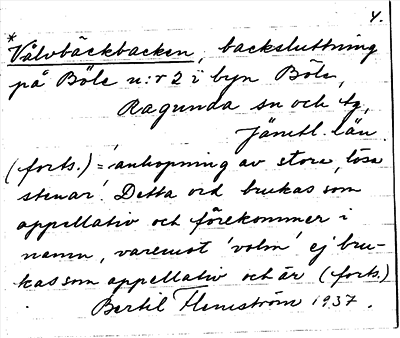 4.
*
Vålvbäckbacken, backsluttning
på Böle n:r 2 i byn Böle,
Ragunda sn och tg,
Jämtl. län.
(forts.) = 'anhopning av stora, lösa
stenar'. Detta ord brukas som
appellativ och förekommer i
namn, varemot 'volm' ej bru-
kas som appellativ och är (forts.)
Bertil Flemström 1937.